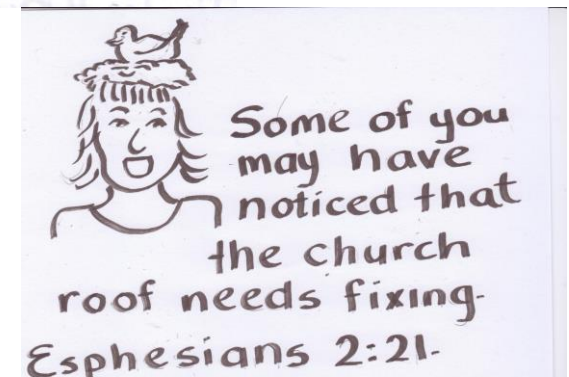 Some of you
may have
noticed that
the church
roof needs fixing.
Esphesians 2:21.